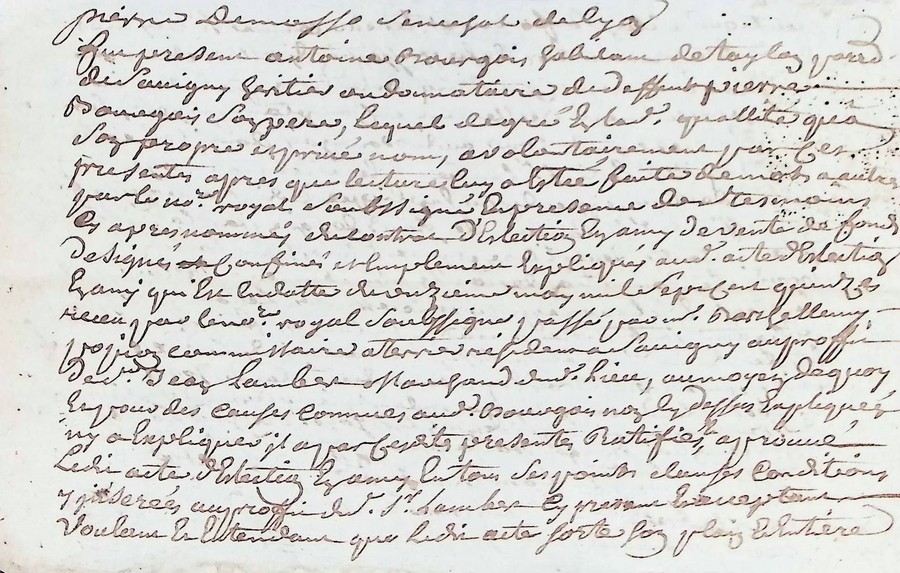 pierre Demosso Senechal de lyon
fut present antoine Bourgois habitant de taylan parr.
de Savigny heritier ou donnataire de deffunt pierre
Bourgois Son pere, lequel de gré En lad. quallité qu'à
Son propre et privé nom, a volontairement par Ces
presentes apres que lecture luy a Estée faitte de mots a autres
par le no.re royal Soubssigné En presence des tesmoins
Cy apres nommés du Contrat d'Eslection En amy de vente de fonds
designés Confinés et Emplement Expliqués aud. acte d'Eslection
En amy qui Est En datte du onzieme may mil Sept Cent quinze
receu par le no.re royal Soubssigné passé par m.e Barthellemy
commissaire a terrier résident a Savigny au proffit
de s.r Jean Lambert Marchand dud. lieu, au moyen de quoy
Et pour des Causes Connues aud. Bourgois non Cy dessus Expliqués
ny a Expliquer il a par Cesdits presentes Ratifié, approuvé
Ledit acte d'Eslection En amy En tous Ses points Clauses Conditions
y inserées au proffit dud. S.r Lambert Cy present Et acceptant
Voulant Et Entendant que Ledit acte Sorte Son plain Et Entiere